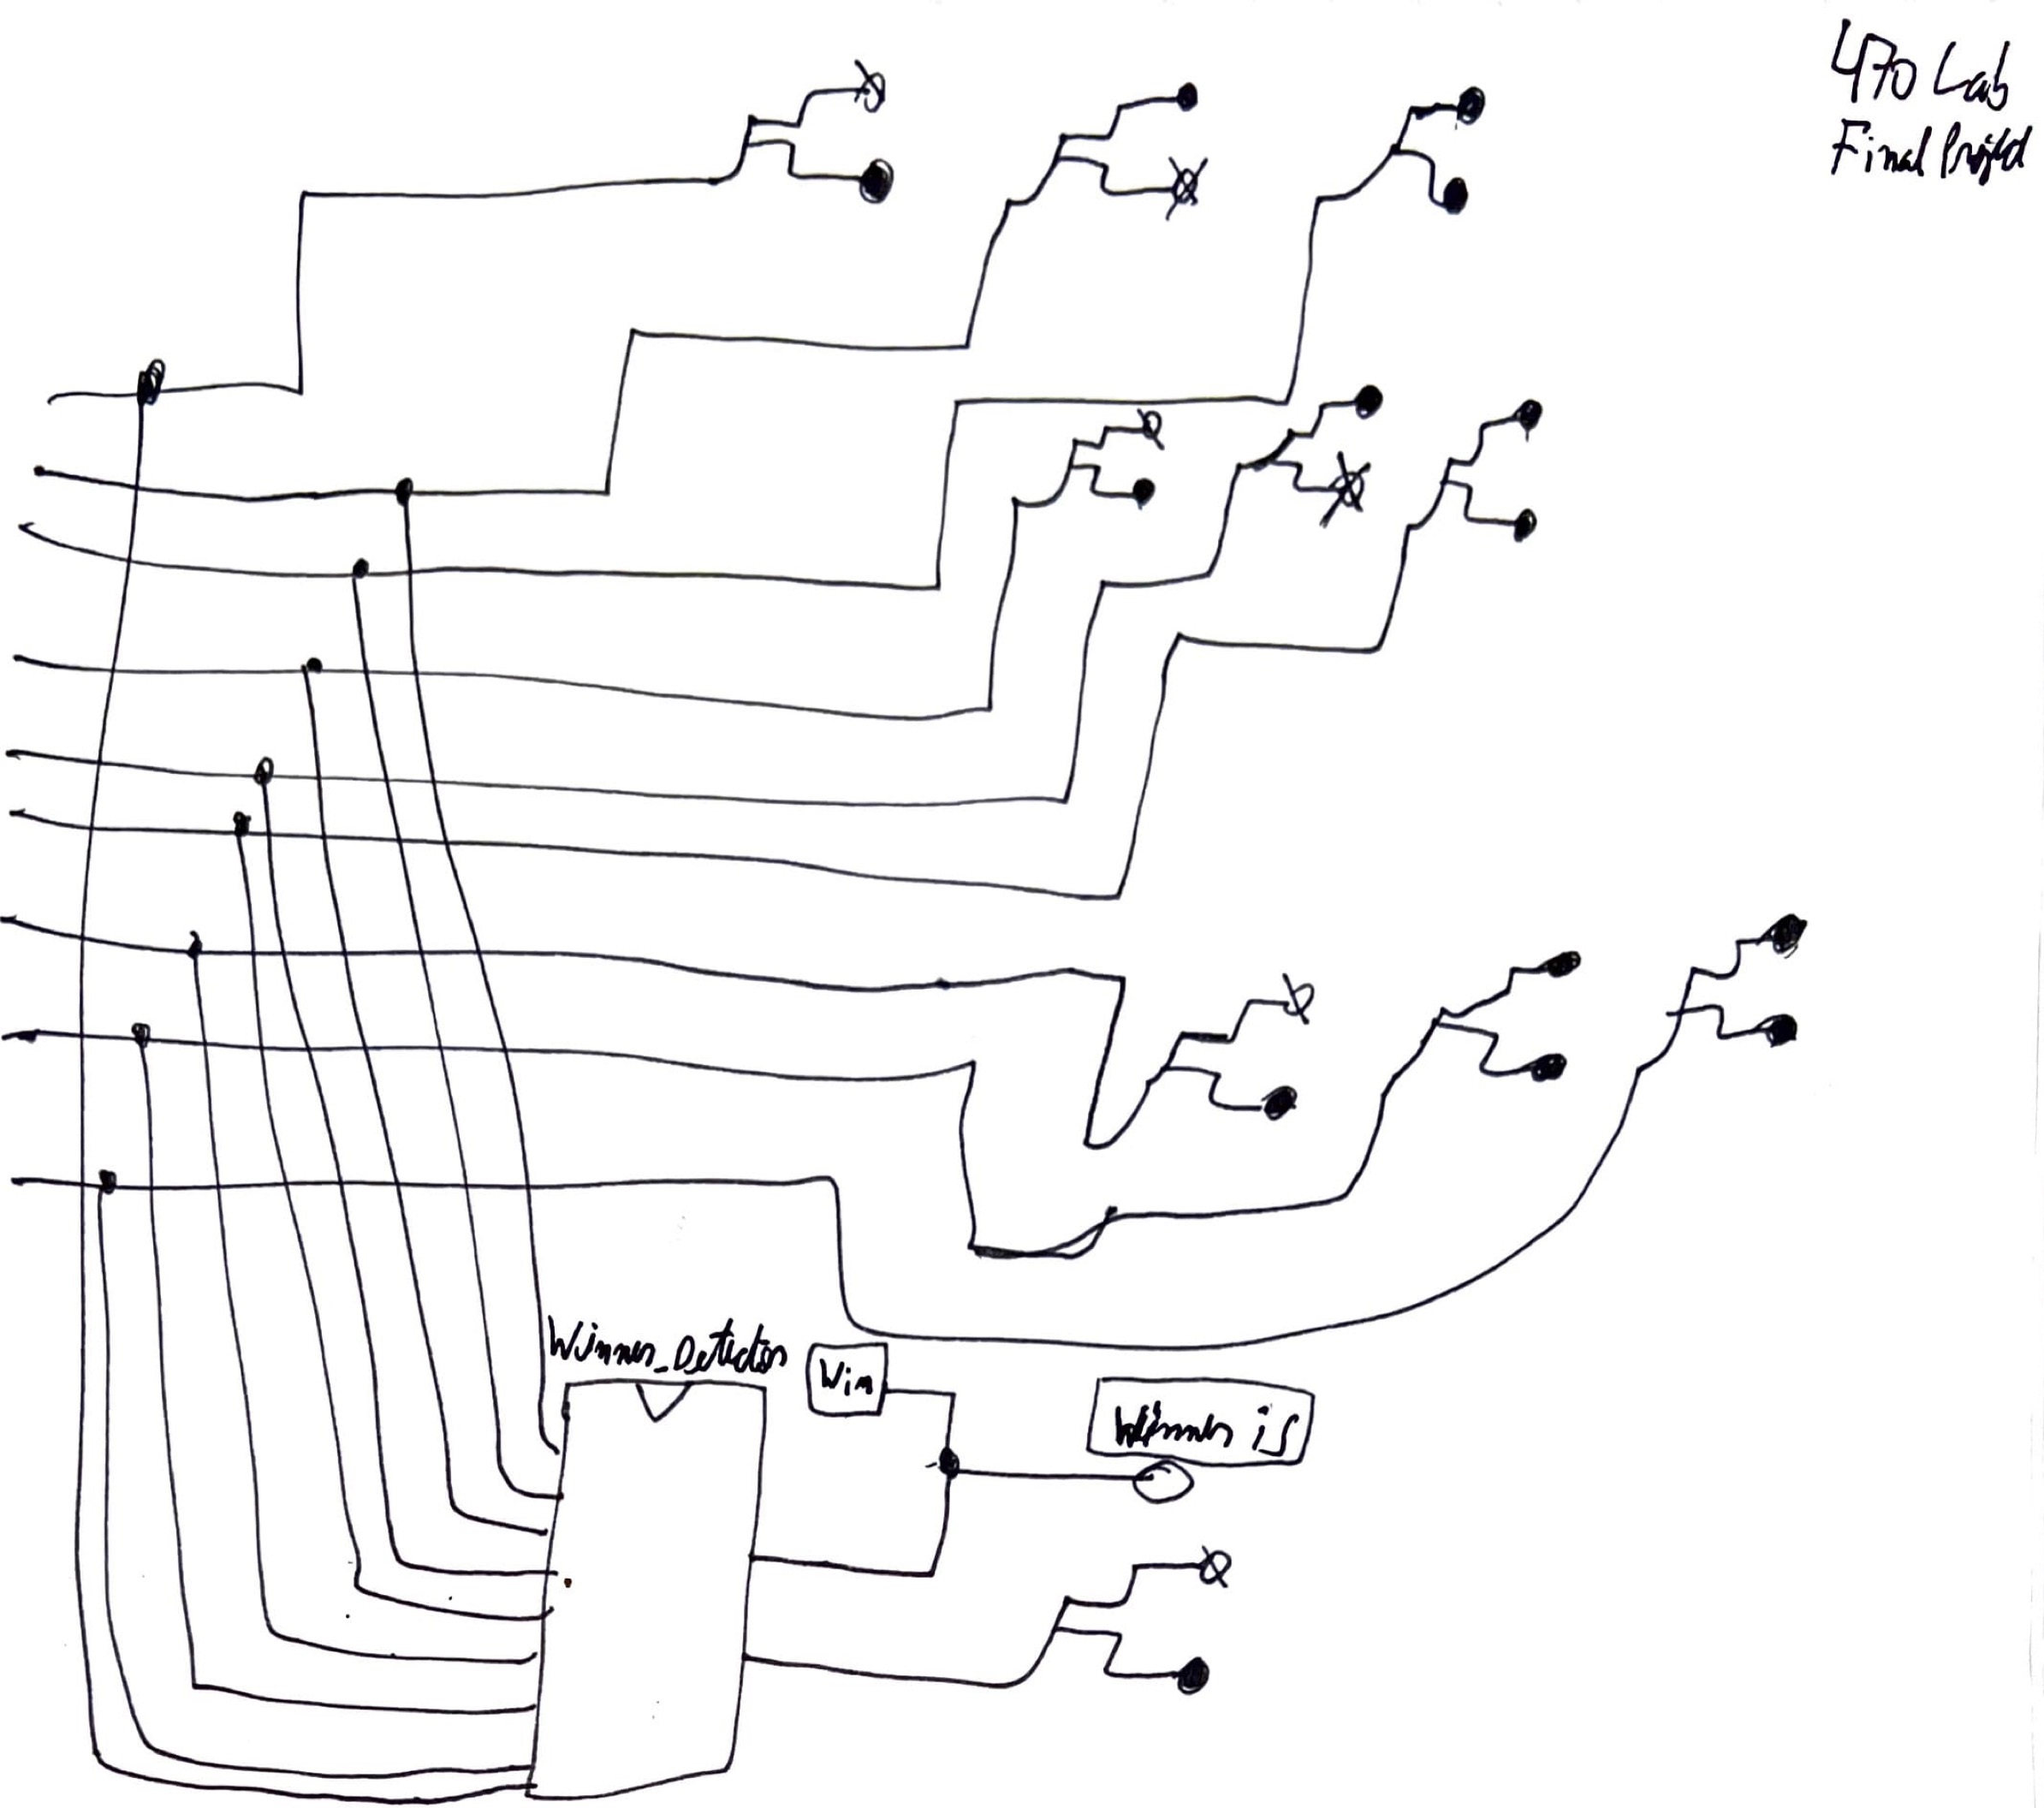 470 Lab
Final
Winner_Detector
Win
Winner is